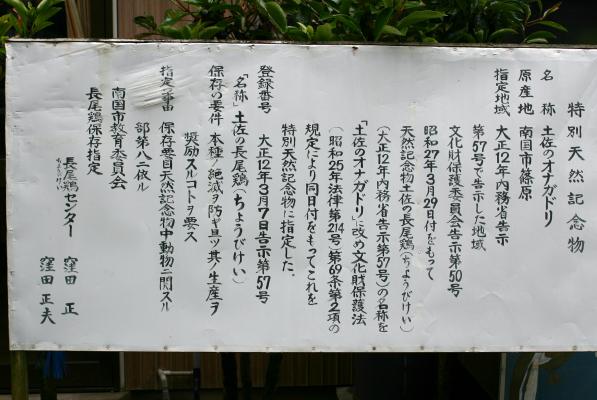 特別天然記念物
名称 土佐のオナガドリ
原産地 南国市篠原
指定地域 大正12年内務省告示
第57号で告示した地域
文化財保護委員会告示第50号
昭和27年3月29日付をもって
天然記念物土佐の長尾鶏(ちょうびけい)
(大正12年内務省告示第57号)の名称を
「土佐のオナガドリ」に改め文化財保護法
(昭和25年法律第214号)第69条第2項の
規定により同日付をもってこれを
特別天然記念物に指定した.
登録番号 大正12年3月7日告示第57号
「名称」土佐の長尾鶏(ちょうびけい)
保存の要件 本種ノ絶滅ヲ防ギ且ツ其ノ生産ヲ
奨励スルコトヲ要ス
保存要目天然記念物中動物ニ関スル
部第八ニ依ル
南国市教育委員会
長尾鶏保存指定
長尾鶏センター 窪田 正
ちょうびけい
窪田 正夫